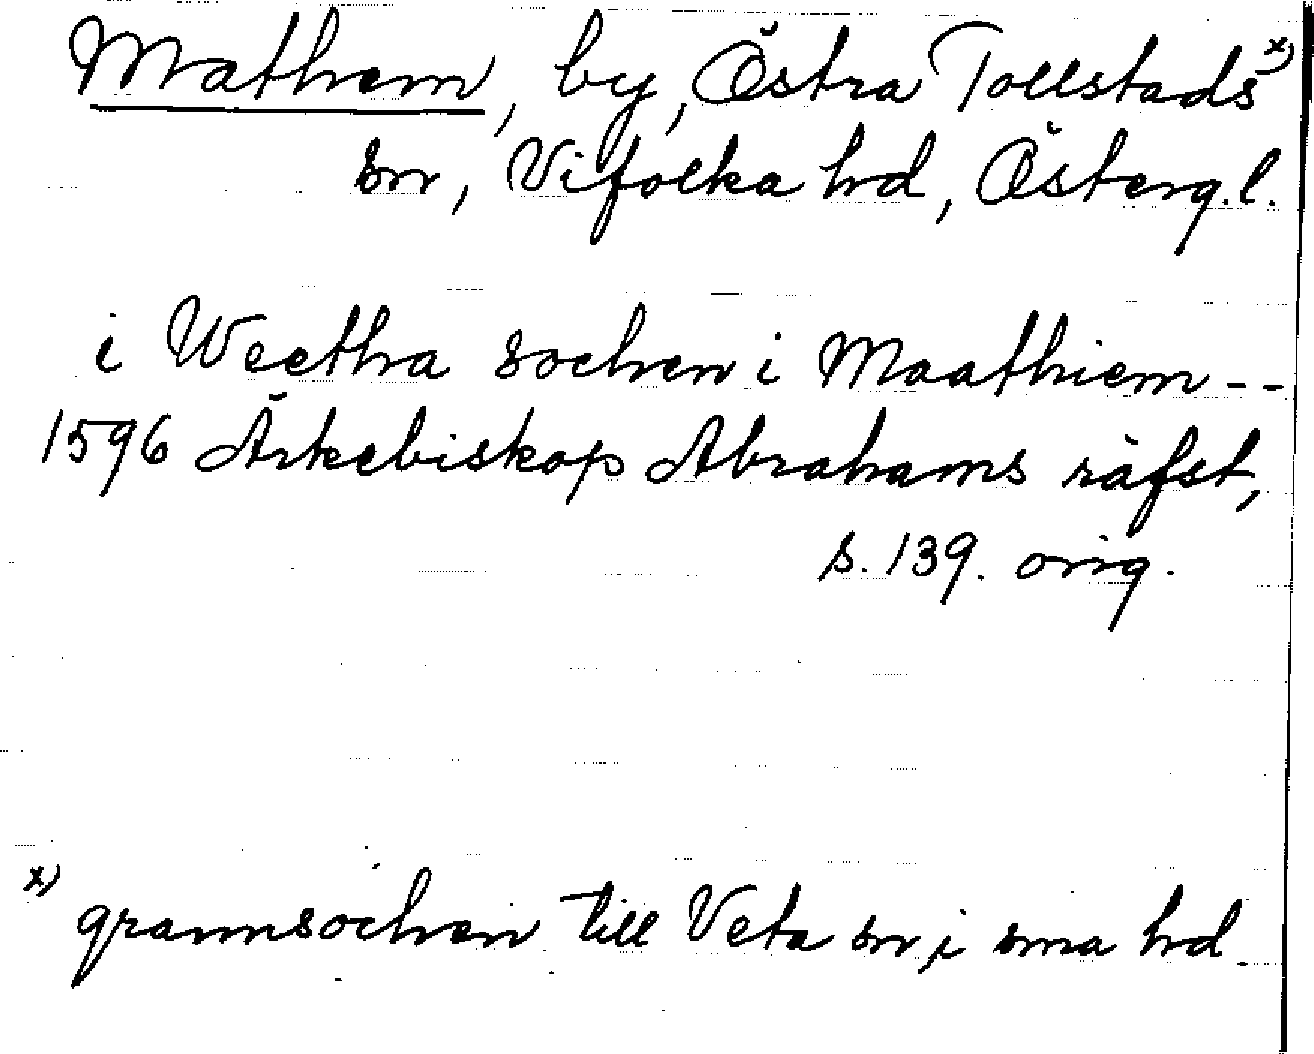 Mathem, by, Östra Tollstads x)
sn, Vifolka hd, Österg.l.
i Weetha sochen i Maathiem --
1596 Ärkebiskop Abrahams räfst,
s. 139. orig.
x) grannsochen till Veta sn, i sma hd